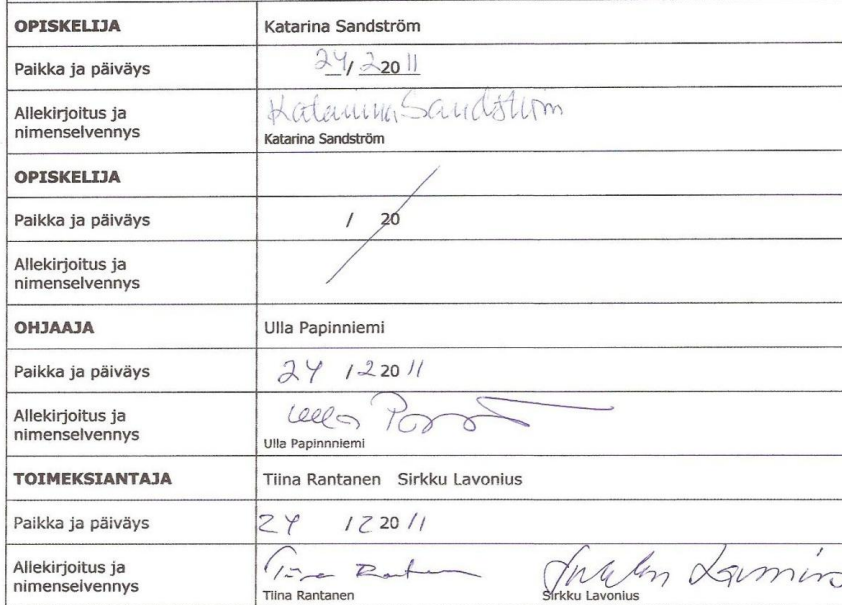 OPISKELIJA Katarina Sandström
Paikka ja päiväys 24/ 2 20 11
Allekirjoitus ja
nimenselvennys
Katarina Sandström
Katarina Sandström
OPISKELIJA
Paikka ja päiväys / 20
Allekirjoitus ja
nimenselvennys
OHJAAJA Ulla Papinniemi
Paikka ja päiväys 24 / 2 20 11
Allekirjoitus ja
nimenselvennys
Ulla
Ulla Papinnniemi
TOIMEKSIANTAJA Tiina Rantanen Sirkku Lavonius
Paikka ja päiväys 24 / 2 20 11
Allekirjoitus ja
nimenselvennys
Tiina Rantanen Sirkku Lavonius